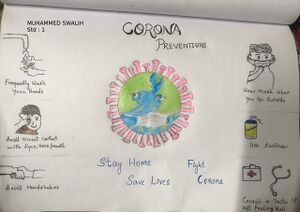 MUHAMMED SWALIH
Std : 1
CORONA
PREVENTIONS
Frequently Wash
Your Hands
Wear Mask when
You Go Outside
Avoid Direct contact
with Eyes, Nose, Mouth
Use Sanitizer
Stay Home
Save Lives
Fight
Corona
Avoid Handshakes
Consult a Doctor If
Not Feeling Well